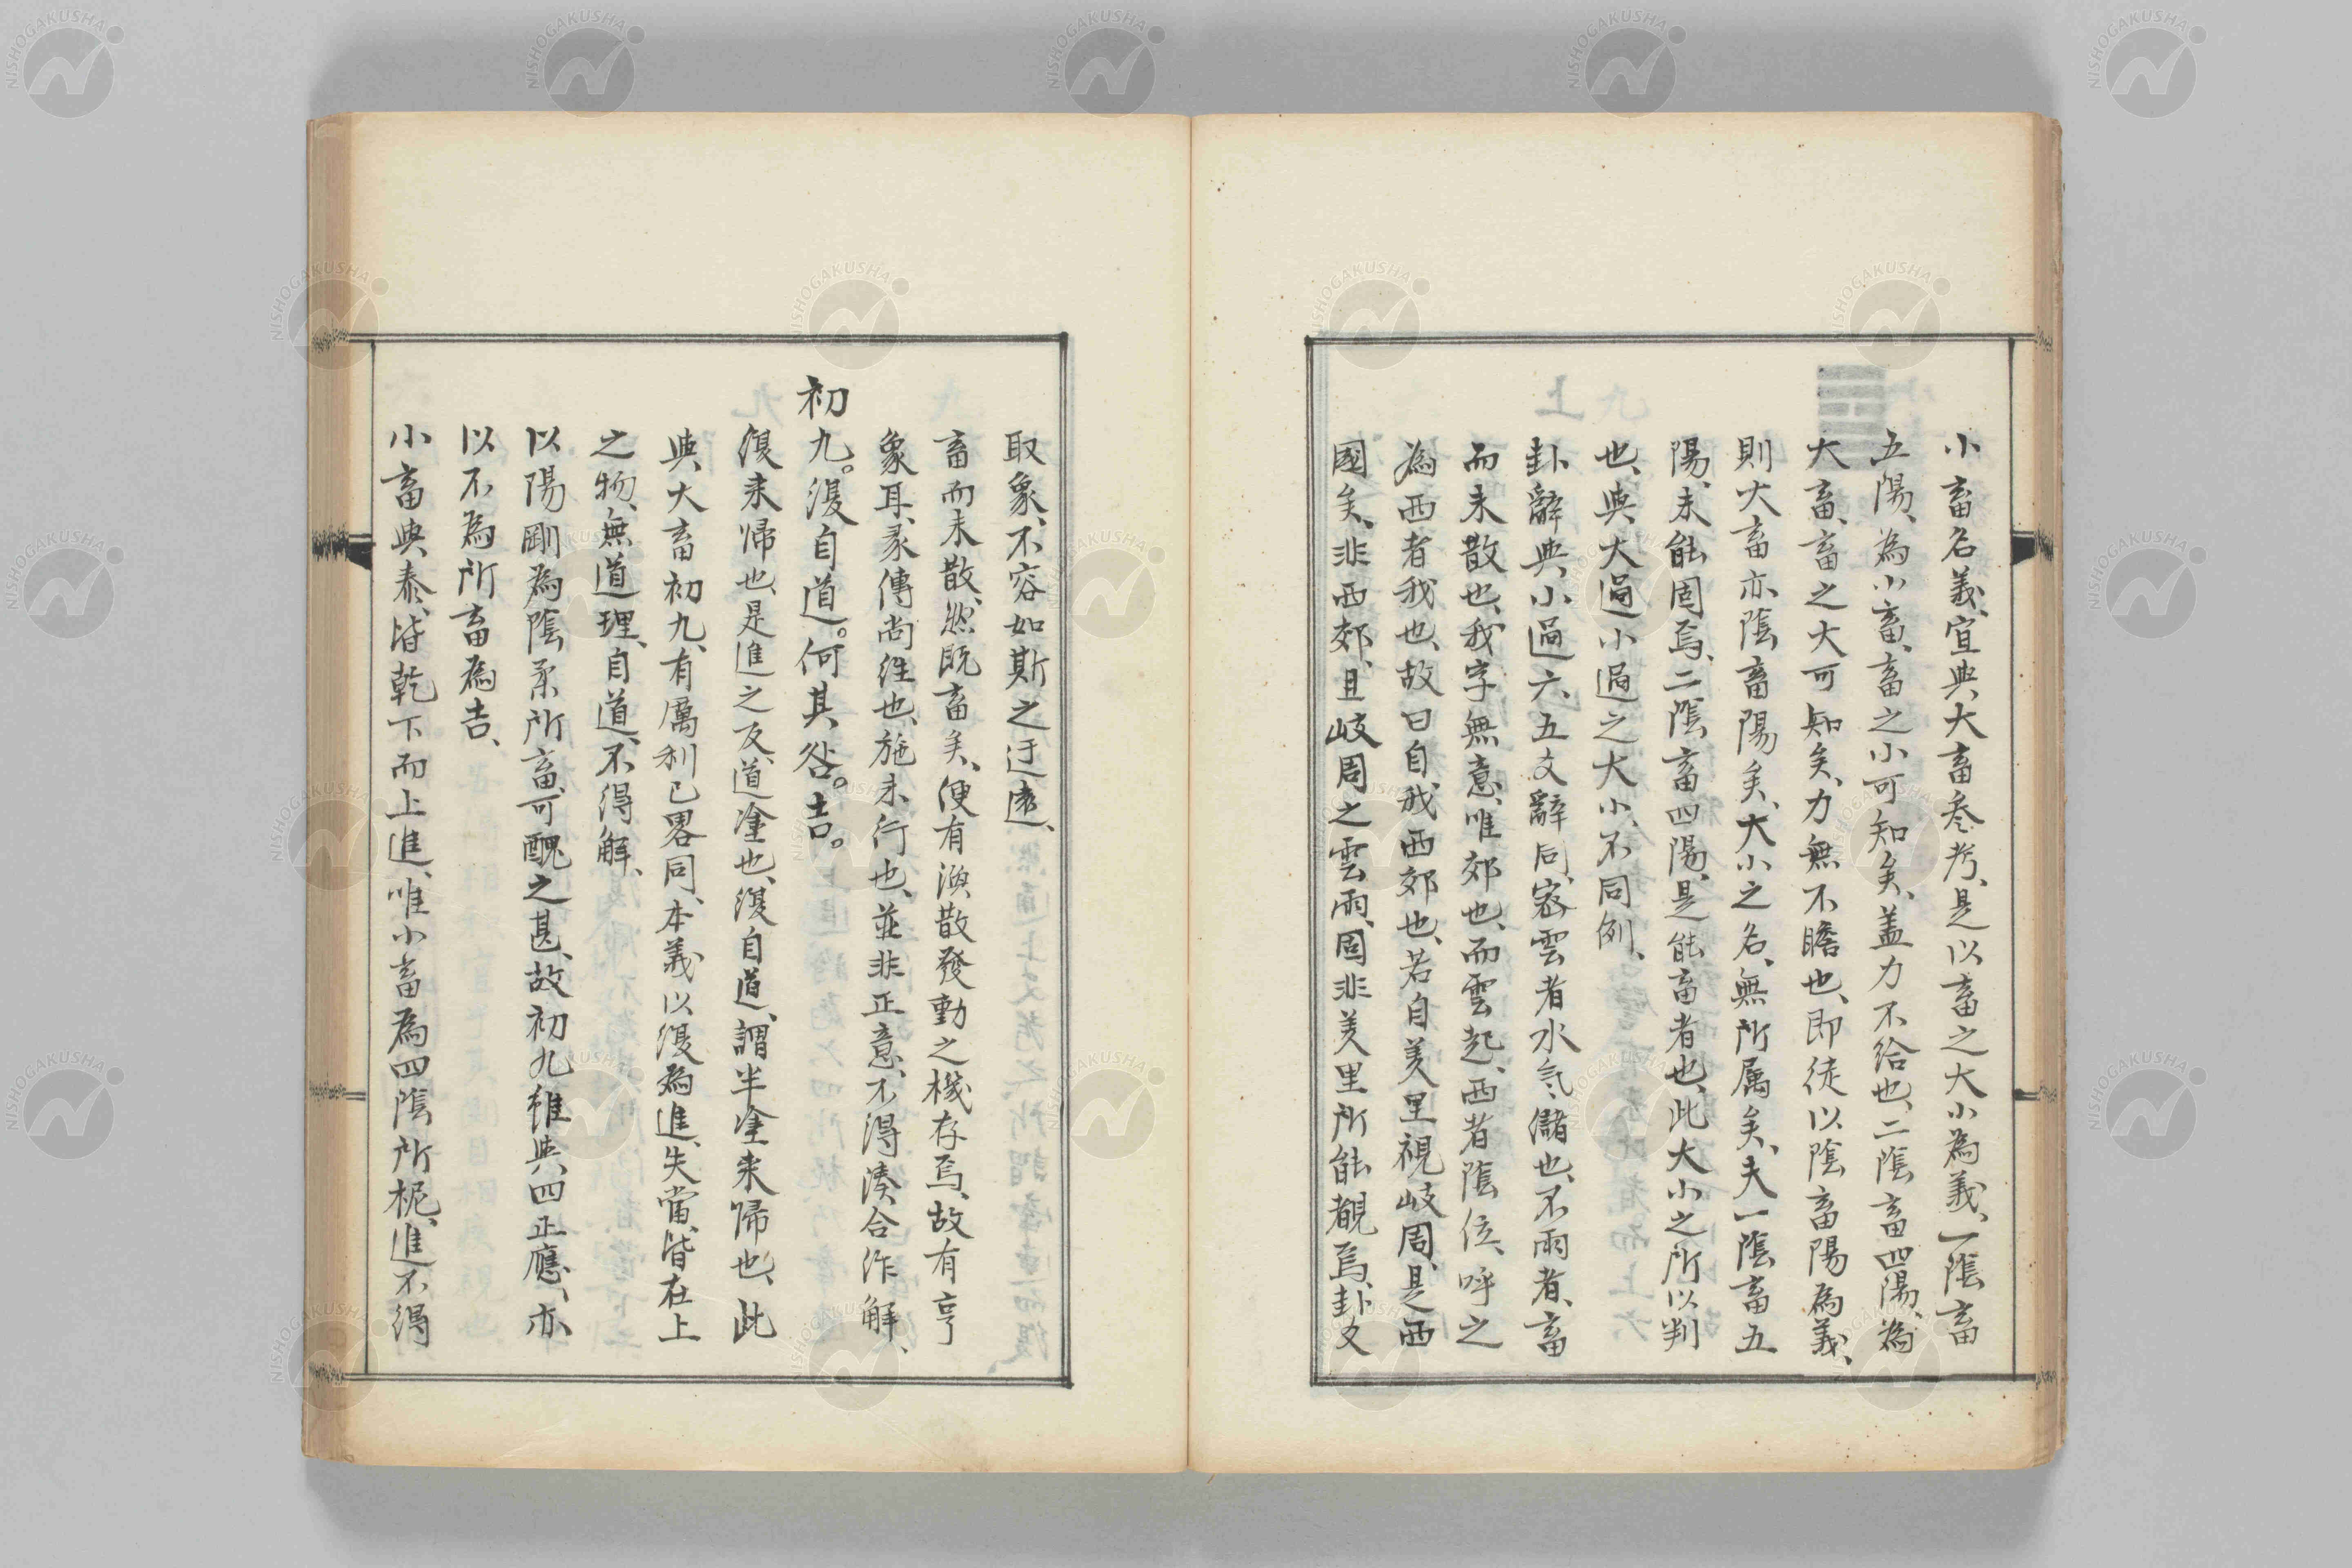 小畜名義、宜與大畜叅考、是以畜之大小為義、一陰畜
五陽、為小畜、畜之小可知矣、盖力不給也、二陰畜四陽、為
大畜、畜之大可知矣、力無不贍也、即徒以陰畜陽為義、
則大畜亦陰畜陽矣、大小之名、無所属矣、夫一陰畜五
陽、未能固焉、二陰畜四陽、是能畜者也、此大小之所以判
也、與大過小過之大小、不同例、
卦辭與小過六五爻辭同、密雲者水氣儲也、不雨者、畜
而未散也、我字無意、唯郊也、而雲起、西者陰位、呼之
為西者我也、故曰自我西郊也、若自羑里視岐周、是西
國矣、非西郊、且岐周之雲雨、固非羑里所能覩焉、卦爻
取象、不容如斯之迂遠、
畜而未散、然既畜矣、便有渙散發動之機存焉、故有亨
象耳、彖傳尚往也、施未行也、並非正意、不得湊合作解、
初九。復自道。何其咎。吉。
復来歸也、是進之反、道塗也、復自道、謂半塗来歸也、此
與大畜初九、有厲利已畧同、本義以復為進、失當、皆在上
之物、無道理、自道、不得解、
以陽剛為陰柔所畜、可醜之甚、故初九雖與四正應、亦
以不為所畜為吉、
小畜與泰、皆乾下而上進、唯小畜為四陰所柅、進不得
NISHOGAKUSHA